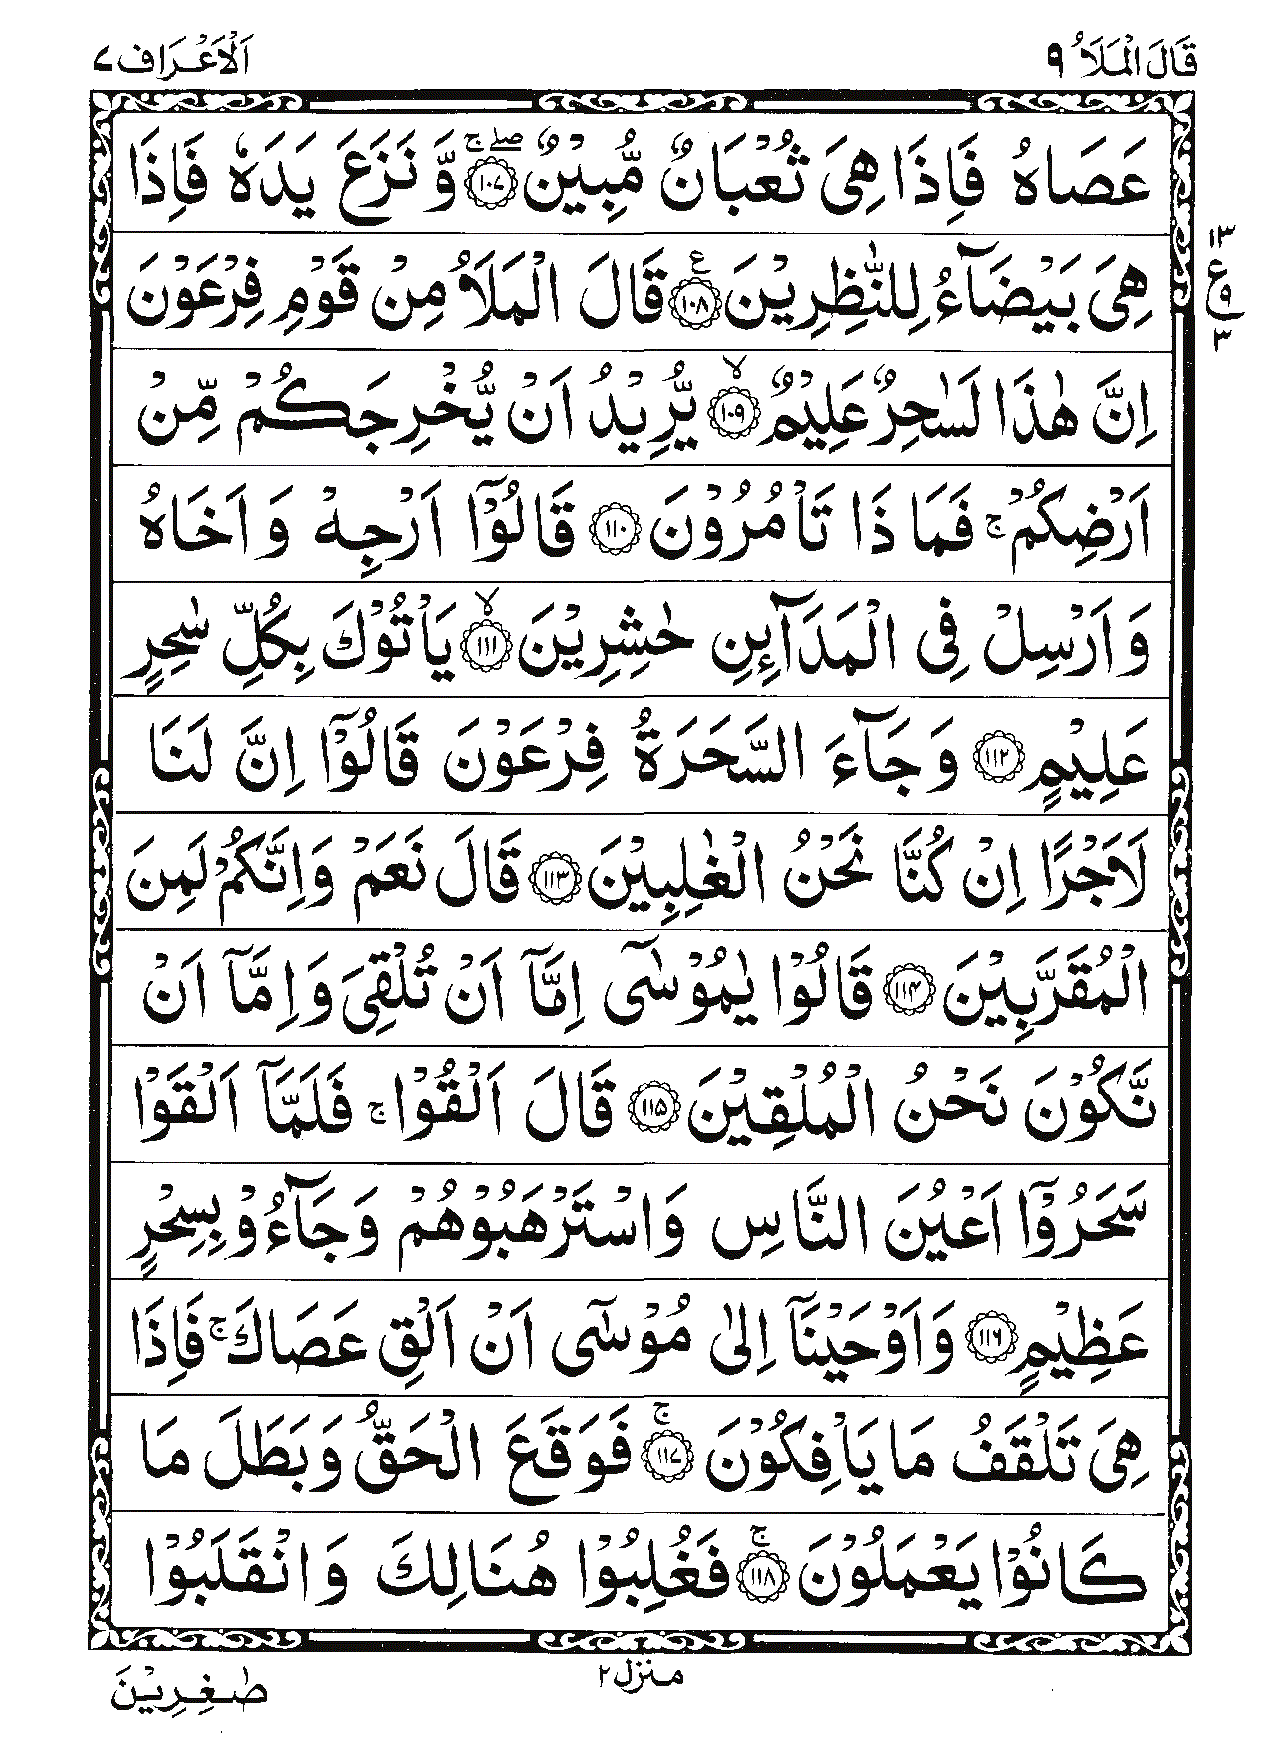 قَالَ الْمَلَاُ ٩
اَلْاَعْرَاف ٧
عَصَاهُ فَاِذَا هِیَ ثُعْبَانٌ مُّبِیْنٌ ۚۖ‏﴿۱۰۷﴾ وَّ نَزَعَ یَدَهٗ فَاِذَا
هِیَ بَیْضَآءُ لِلنّٰظِرِیْنَ ﴿۱۰۸﴾ ع قَالَ الْمَلَاُ مِنْ قَوْمِ فِرْعَوْنَ
۱۳
ع
۹
۳
اِنَّ هٰذَا لَسٰحِرٌ عَلِیْمٌ ۙ﴿۱۰۹﴾ یُّرِیْدُ اَنْ یُّخْرِجَكُمْ مِّنْ
اَرْضِكُمْ ۚ فَمَا ذَا تَاْمُرُوْنَ ﴿۱۱۰﴾ قَالُوْۤا اَرْجِهْ وَ اَخَاهُ
وَ اَرْسِلْ فِی الْمَدَآىِٕنِ حٰشِرِیْنَ ۙ﴿۱۱۱﴾ یَاْتُوْكَ بِكُلِّ سٰحِرٍ
عَلِیْمٍ ﴿۱۱۲﴾ وَ جَآءَ السَّحَرَةُ فِرْعَوْنَ قَالُوْۤا اِنَّ لَنَا
لَاَجْرًا اِنْ كُنَّا نَحْنُ الْغٰلِبِیْنَ ﴿۱۱۳﴾ قَالَ نَعَمْ وَ اِنَّكُمْ لَمِنَ
الْمُقَرَّبِیْنَ ﴿۱۱۴﴾ قَالُوْا یٰمُوْسٰۤی اِمَّاۤ اَنْ تُلْقِیَ وَ اِمَّاۤ اَنْ
نَّكُوْنَ نَحْنُ الْمُلْقِیْنَ ﴿۱۱۵﴾ قَالَ اَلْقُوْا ۚ فَلَمَّاۤ اَلْقَوْا
سَحَرُوْۤا اَعْیُنَ النَّاسِ وَ اسْتَرْهَبُوْهُمْ وَ جَآءُوْ بِسِحْرٍ
عَظِیْمٍ ﴿۱۱۶﴾ وَ اَوْحَیْنَاۤ اِلٰی مُوْسٰۤی اَنْ اَلْقِ عَصَاكَ ۚ فَاِذَا
هِیَ تَلْقَفُ مَا یَاْفِكُوْنَ ۚ﴿۱۱۷﴾ فَوَقَعَ الْحَقُّ وَ بَطَلَ مَا
كَانُوْا یَعْمَلُوْنَ ۚ﴿۱۱۸﴾ فَغُلِبُوْا هُنَالِكَ وَ انْقَلَبُوْا
منزل ۲
صٰغِرِیْنَ